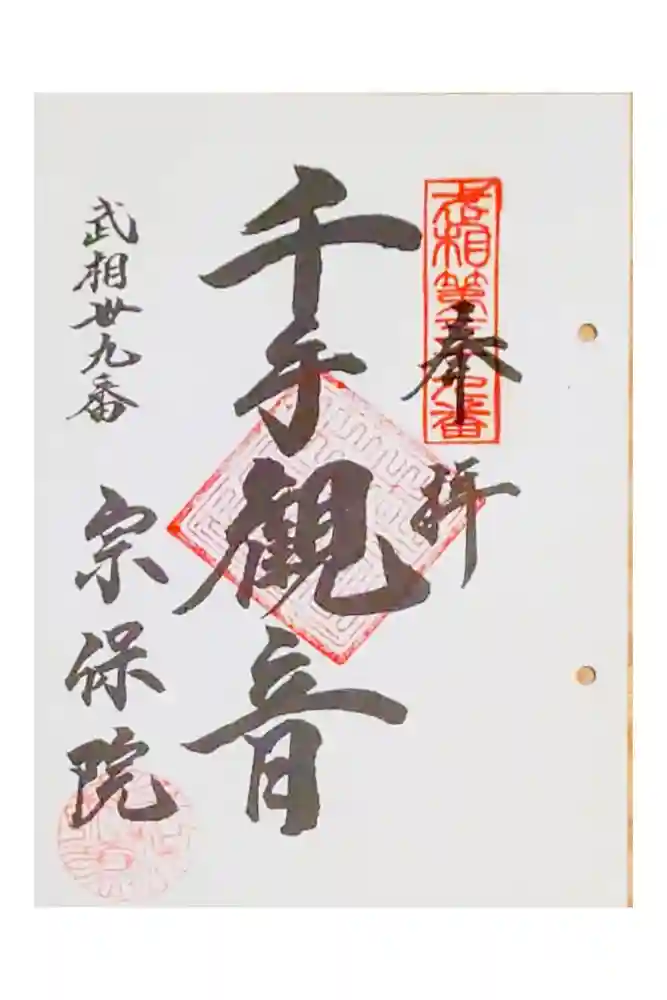 武相第三十九番
奉拝
千手観音
武相丗九番
宗保院